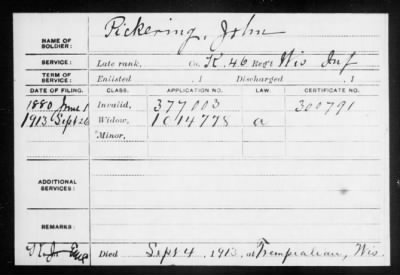 NAME OF SOLDIER: Pickering, John
SERVICE: Late rank, Co. K. 46 Reg't Wis Inf
TERM OF SERVICE: Enlisted , 1 Discharged , 1
DATE OF FILING. CLASS. APPLICATION NO. LAW. CERTIFICATE NO.
1880 June 1 Invalid, 377003 300791
1913 Sept 26 Widow, 1014778 a
Minor,
ADDITIONAL SERVICES:
REMARKS:
Died Sept 4, 1913, at Trempealeau, Wis.